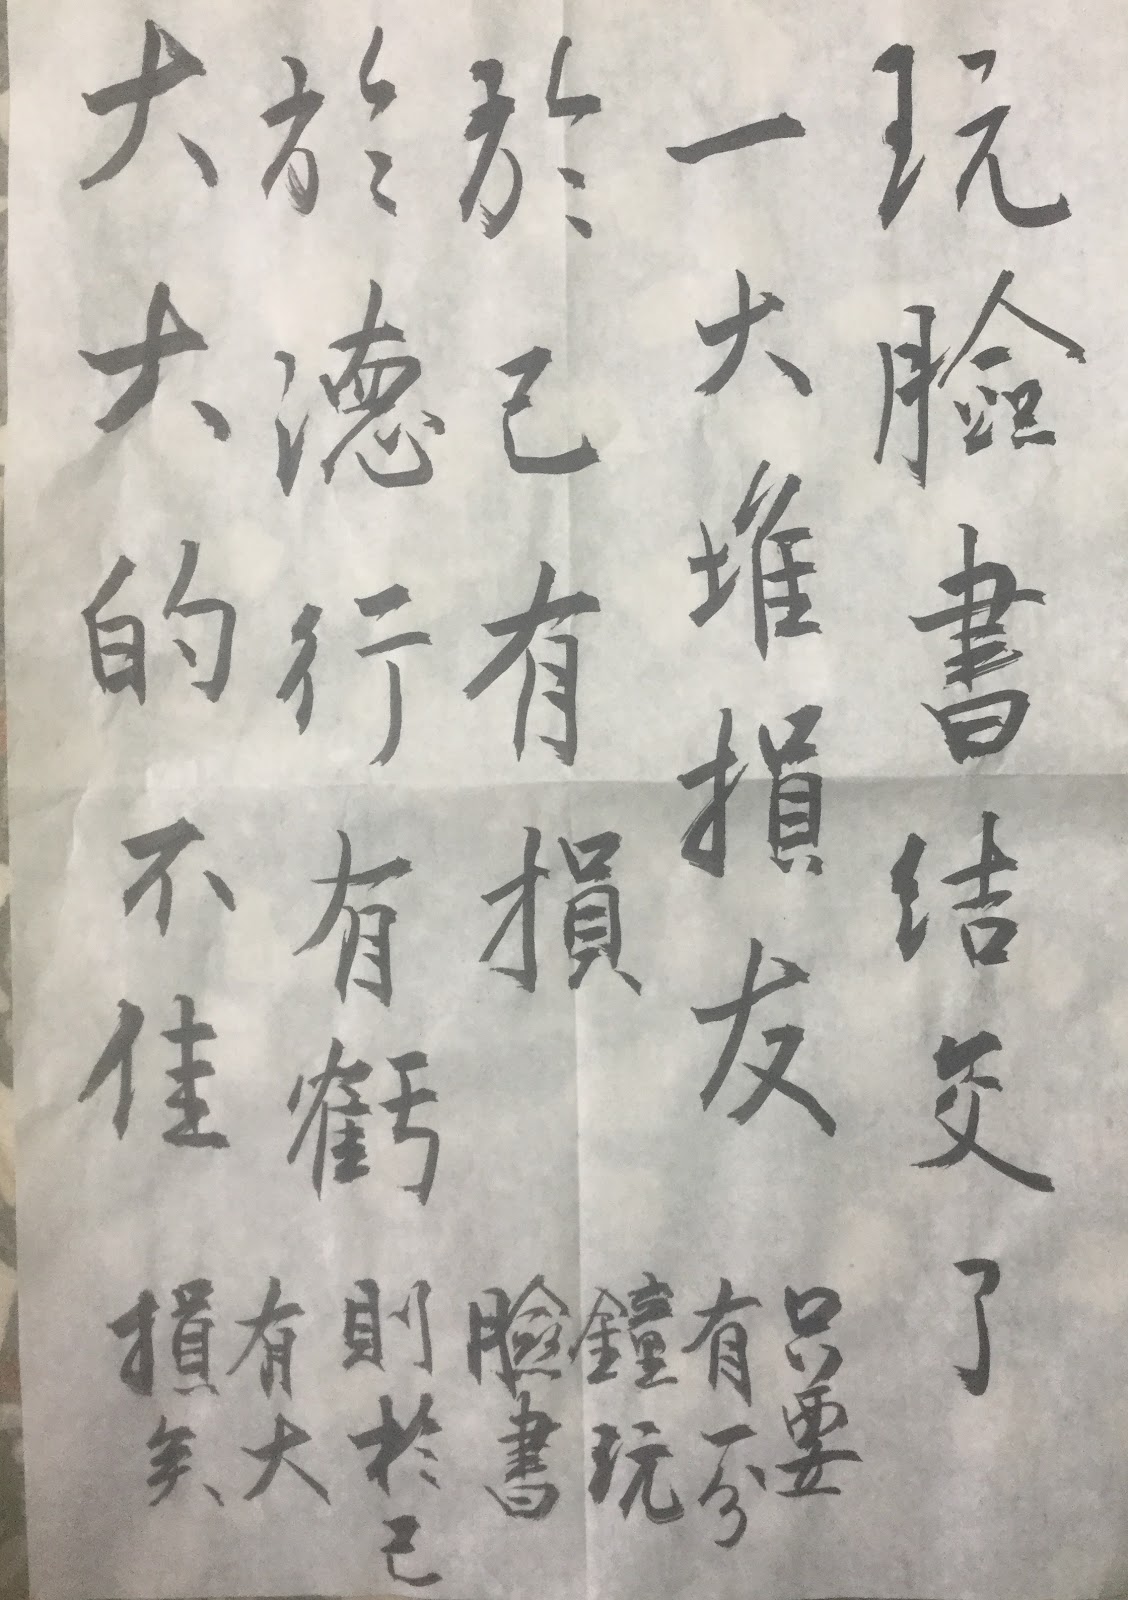 玩臉書结交了
一大堆損友
於己有損
於德行有虧
大大的不佳
只要
有一分
鐘玩
臉書
則於己
有大
損矣